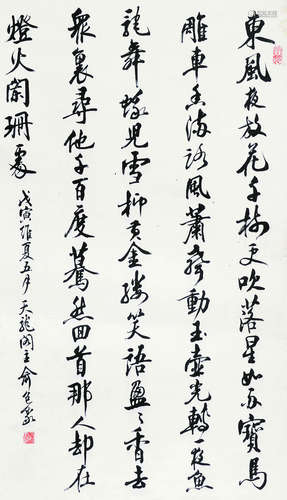 東風夜放花千樹更吹落星如雨寶馬
雕車香滿路風簫聲動玉壺光轉一夜魚
龍舞蛾兒雪柳黃金縷笑語盈々香去
眾裏尋他千百度驀然回首那人却在
燈火闌珊處
戊寅維夏五月 天龍閣主俞